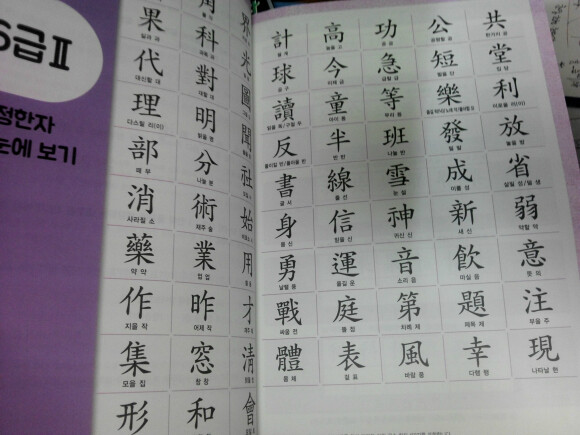 6급Ⅱ
정한자
눈에 보기
果 科 界
代 對 光
대신할 대 대할 대
理 明 圖
다스릴 리(이) 밝을 명
部 分 聞
떼 부 나눌 분
消 社
사라질 소
術 始
재주 술
藥 業 用
약 약 업 업
作 昨 才
지을 작 어제 작
集 窓 淸
모을 집 창 창
形 和 會
計 高 功 公 共
셀 계 높을 고 공 공 공평할 공 한가지 공
球 今 急 短 堂
공 구 이제 금 급할 급 짧을 단 집 당
讀 童 等 樂 利
읽을 독/구절 두 아이 동 무리 등 이로울 리(이)
反 半 班 發 放
돌이킬 반/돌아올 반 반 반 나눌 반 필 발 놓을 방
書 線 雪 成 省
글 서 줄 선 눈 설 이룰 성 살필 성/덜 생
身 信 神 新 弱
몸 신 믿을 신 귀신 신 새 신 약할 약
勇 運 音 飮 意
날랠 용 옮길 운 소리 음 마실 음 뜻 의
戰 庭 第 題 注
싸움 전 뜰 정 차례 제 제목 제 부을 주
體 表 風 幸 現
몸 체 겉 표 바람 풍 다행 행 나타날 현